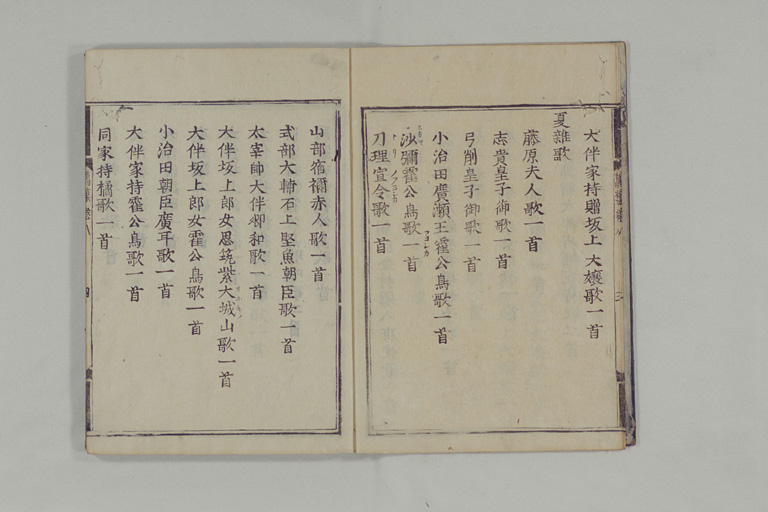 大伴家持贈坂上大孃歌一首
夏雜歌
藤原夫人歌一首
志貴皇子御歌一首
弓削皇子御歌一首
小治田廣瀬王霍公鳥歌一首
沙彌霍公鳥歌一首
刀理宣令歌一首
山部宿禰赤人歌一首
式部大輔石上堅魚朝臣歌一首
太宰帥大伴卿和歌一首
大伴坂上郎女思筑紫大城山歌一首
大伴坂上郎女霍公鳥歌一首
小治田朝臣廣耳歌一首
大伴家持霍公鳥歌一首
同家持橘歌一首
四